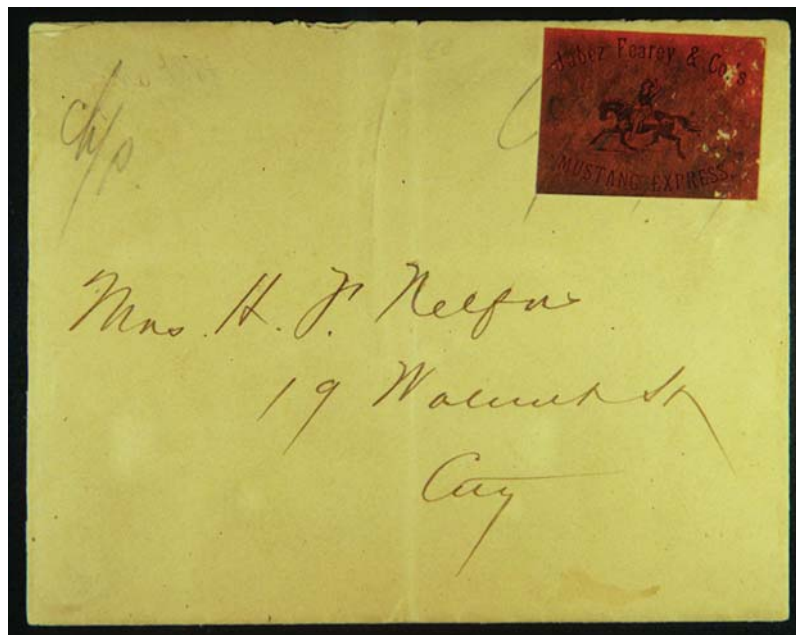 Jabez Fearey & Co.'s
MUSTANG EXPRESS.
Mrs. H. F.
19 Walnut St
City